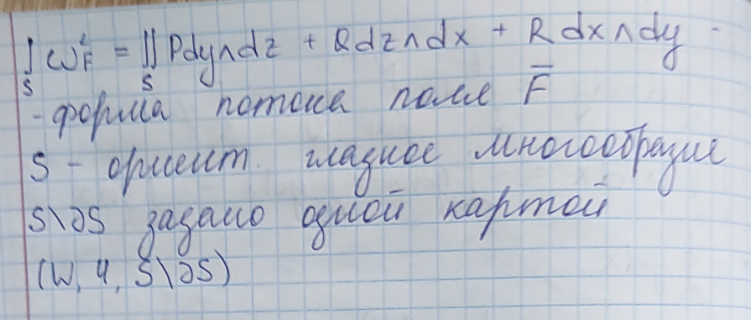 ∫_S ω_F^2 = ∬_S Pdy∧dz + Qdz∧dx + Rdx∧dy -
- форма потока поля F̅
S - ориент. гладкое многообразие
S\∂S задано одной картой
(W, φ, S\∂S)